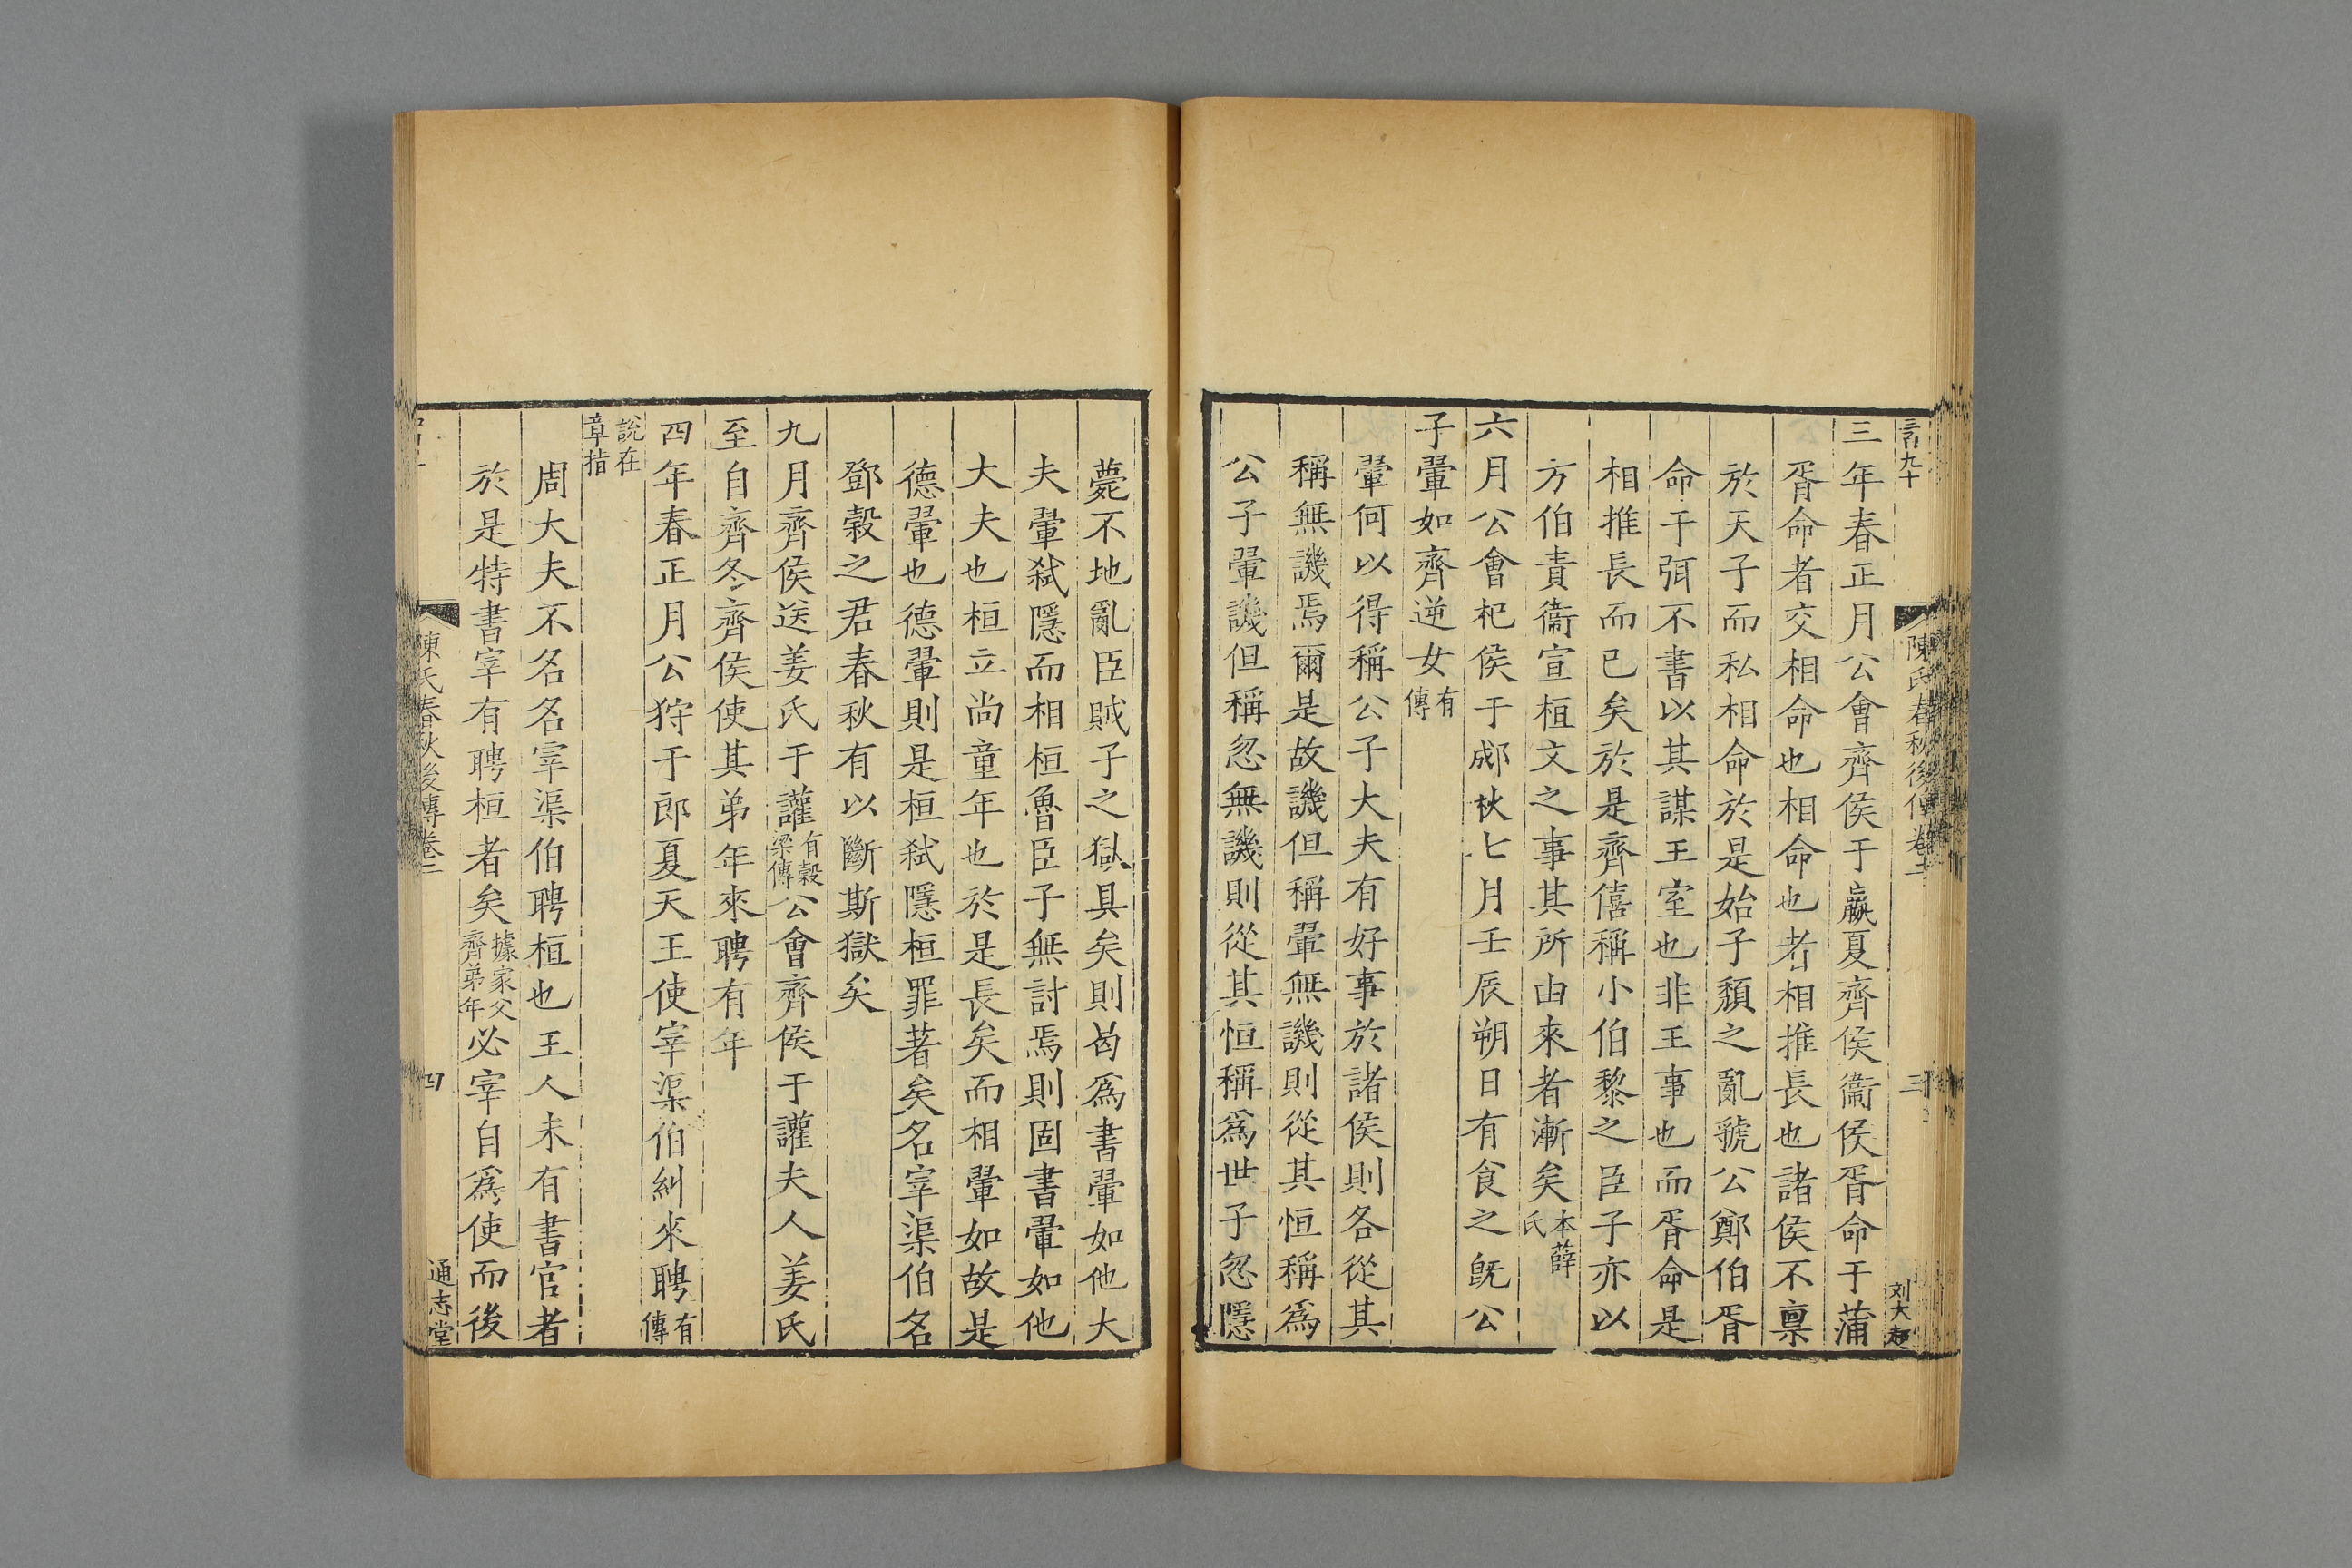 三年春正月公會齊侯于嬴夏齊侯衞侯胥命于蒲
胥命者交相命也相命也者相推長也諸侯不禀
於天子而私相命於是始子頹之亂虢公鄭伯胥
命于弭不書以其謀王室也非王事也而胥命是
相推長而已矣於是齊僖稱小伯黎之臣子亦以
方伯責衞宣桓文之事其所由來者漸矣本薛氏
六月公會杞侯于郕秋七月壬辰朔日有食之旣公
子翬如齊逆女有傳
翬何以得稱公子大夫有好事於諸侯則各從其
稱無譏焉爾是故譏但稱翬無譏則從其恒稱爲
公子翬譏但稱忽無譏則從其恒稱爲世子忽隱
陳氏春秋後傳卷二
三
刘大
薨不地亂臣賊子之獄具矣則曷爲書翬如他大
夫翬弑隱而相桓魯臣子無討焉則固書翬如他
大夫也桓立尚童年也於是長矣而相翬如故是
德翬也德翬則是桓弑隱桓罪著矣名宰渠伯名
鄧穀之君春秋有以斷斯獄矣
九月齊侯送姜氏于讙有穀梁傳公會齊侯于讙夫人姜氏
至自齊冬齊侯使其弟年來聘有年
四年春正月公狩于郎夏天王使宰渠伯糾來聘有傳
說在章指
周大夫不名名宰渠伯聘桓也王人未有書官者
於是特書宰有聘桓者矣據家父齊弟年必宰自爲使而後
陳氏春秋後傳卷二
四
通志堂